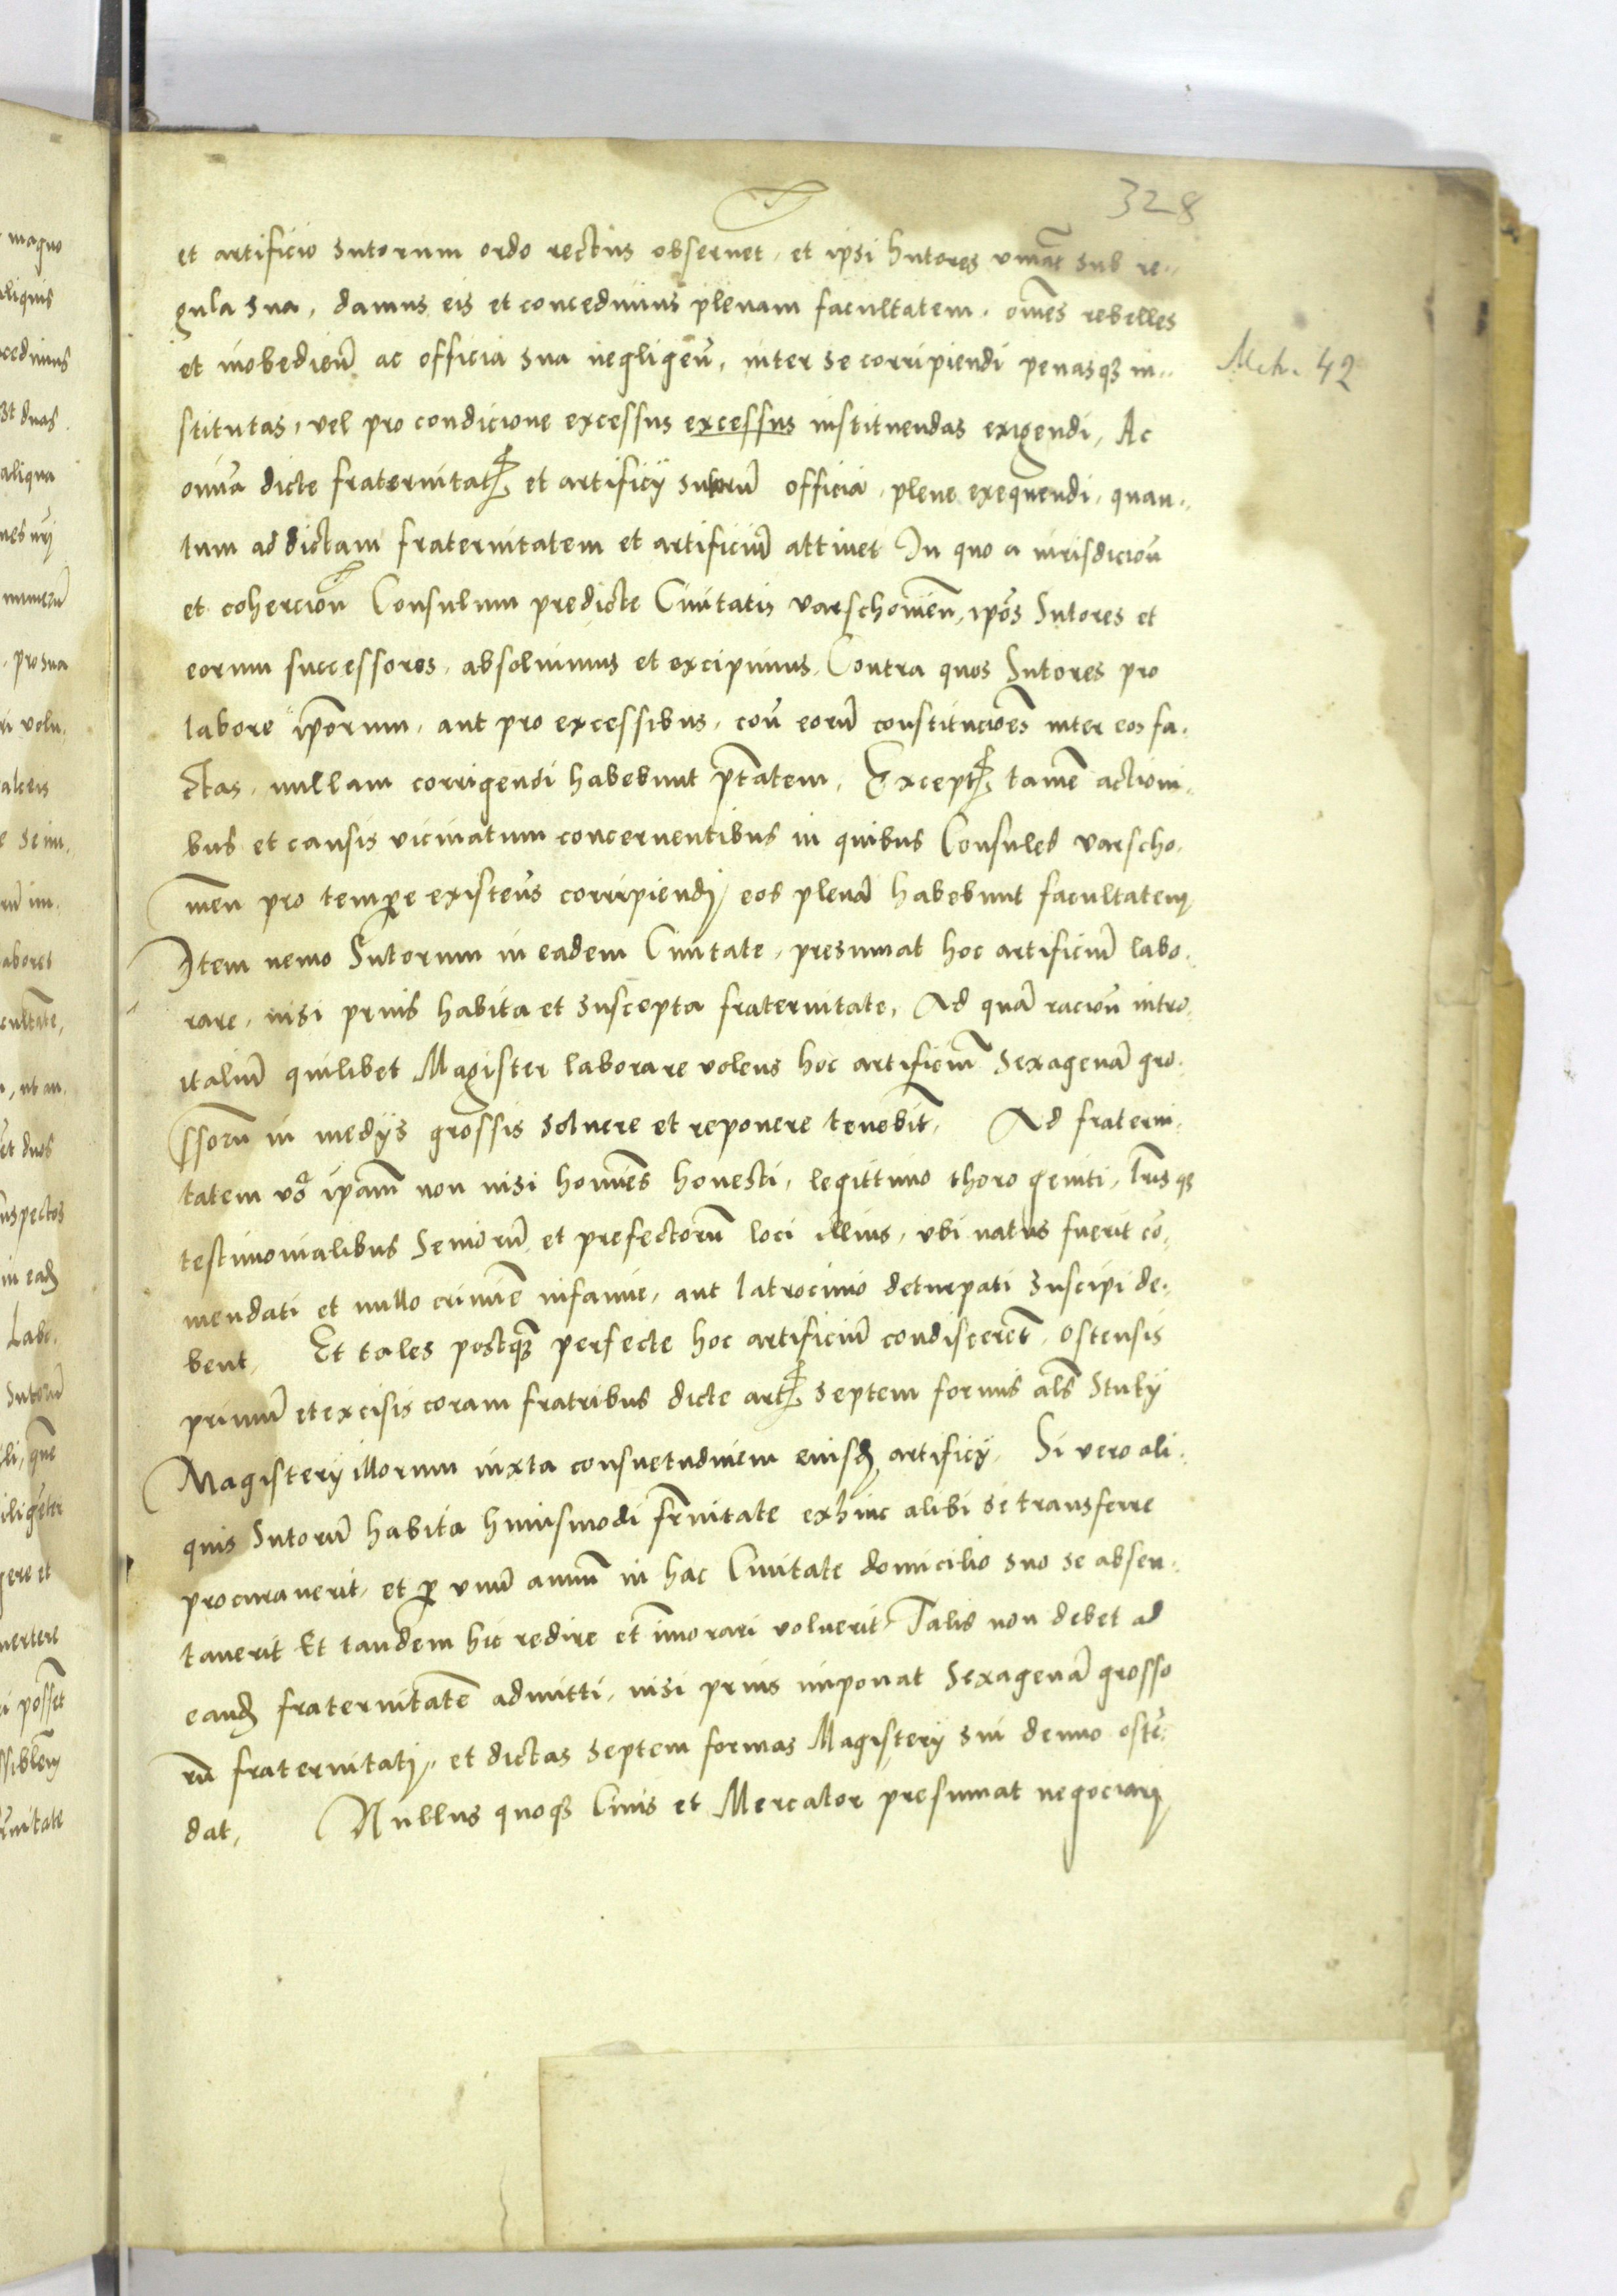 328
et artificio sutorum ordo rectius obseruet, et ipsi Sutores viuāt sub re„
gula sua, damus eis et concedimus plenam facultatem, om̄es rebelles
et inobedieñ ac officia sua negligeñ, inter se corripiendi penasqȝ in„
Mek. 42
stitutas, vel pro condicione excessus excessus instituendas exigendi, Ac
om̄ia dicte fraternitatꝭ et artificij sutorū officia, plene exequendi, quan„
tum ad dictam fraternitatem et artificiū attinet In quo a iurisdicioñ
et cohercioñ Consulum predicte Ciuitatis varschouieñ, ip̄os Sutores et
eorum successores, absoluimus et excipimus, Contra quos Sutores pro
labore ip̄orum, aut pro excessibus, coñ eorū constitucioēs inter eos fa„
ctas, nullam corrigendi habebunt p̄tatem, Exceptꝭ tamē actioni„
bus et causis vicinatum concernentibus in quibus Consules varscho„
uien pro tempꝑe existeñs corripiendj eos plenā habebunt facultatem
Item nemo Sutorum in eadem Ciuitate, presumat hoc artificiū labo„
rare, nisi prius habita et suscepta fraternitate, Ad quā racioñ intro„
italiū quilibet Magister laborare volens hoc artificiū Sexagenā gro„
ssorū in medijs grossis soluere et reponere tenebit̄, Ad fraterni„
tatem v̄o ip̄am non nisi homīes honesti, legittimo thoro geniti, l̄risqȝ
testimonialibus Seniorū et prefectorū loci illius, vbi natus fuerit cō„
mendati et nullo crimīe infamie, aut latrocinio deturpati suscipi de„
bent, Et tales postqȝ perfecte hoc artificiū condiscerēt, ostensis
primū et excisis coram fratribus dicte artꝭ septem formis al̄s Stuky
Magisterij illorum iuxta consuetudinem eiusdȝ artificij, Si vero ali„
quis Sutorū habita huiusmodi fr̄nitate exhinc alibi se transferre
procurauerit, et ꝑ vnū annū in hac Ciuitate domicilio suo se absen„
tauerit Et tandem hic redire et īmorari voluerit, Talis non debet ad
eandȝ fraternitatē admitti, nisi prius imponat Sexagenā grosso
rū fraternitatj, et dictas septem formas Magisterij sui denuo ostē„
dat, Nullus quoqȝ Ciuis et Mercator presumat negociarj